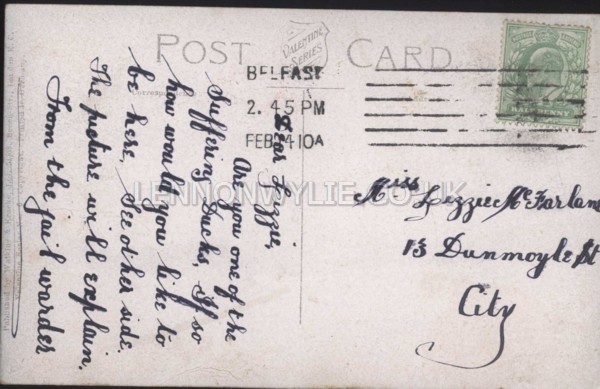 POST CARD
VALENTINE
SERIES
BELFAST
2. 45 PM
FEB 4 10A
Dear Lizzie,
Are you one of the
Suffering Ducks, If so
how would you like to
be here, See other side.
The picture will explain,
From the jail warder
Miss Lizzie McFarlane
13 Dunmoyle St
City
LENNONWYLIE.CO.UK